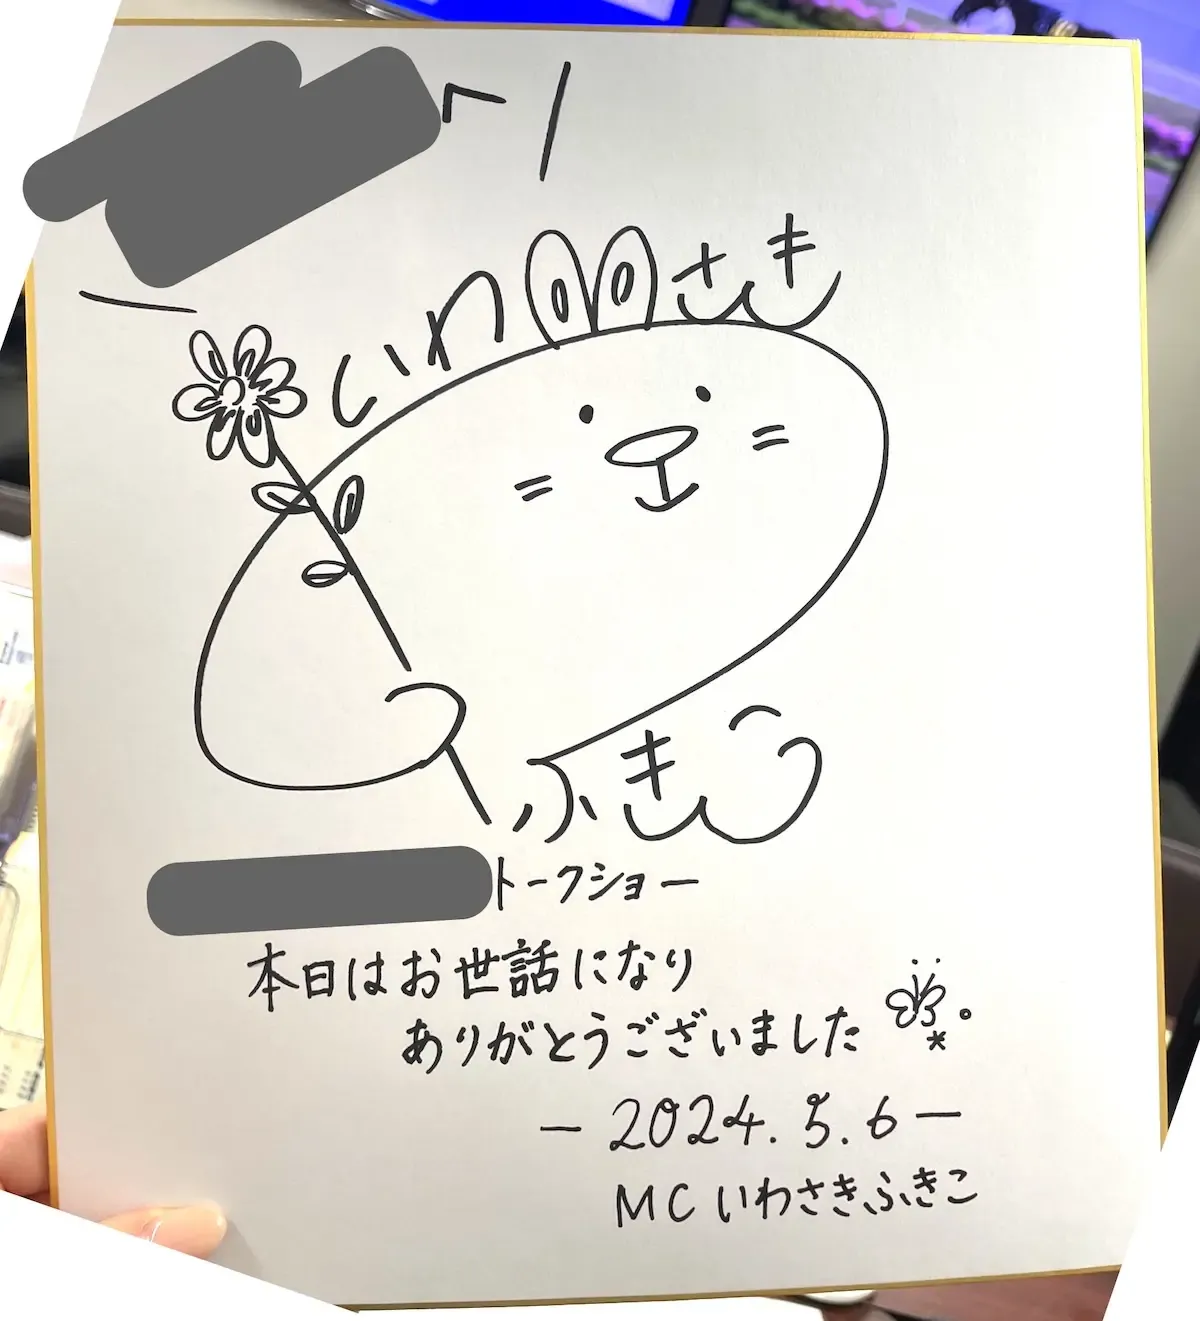 へ
いわさき
ふきこ
トークショー
本日はお世話になり
ありがとうございました。
－2024.5.6－
MCいわさきふきこ